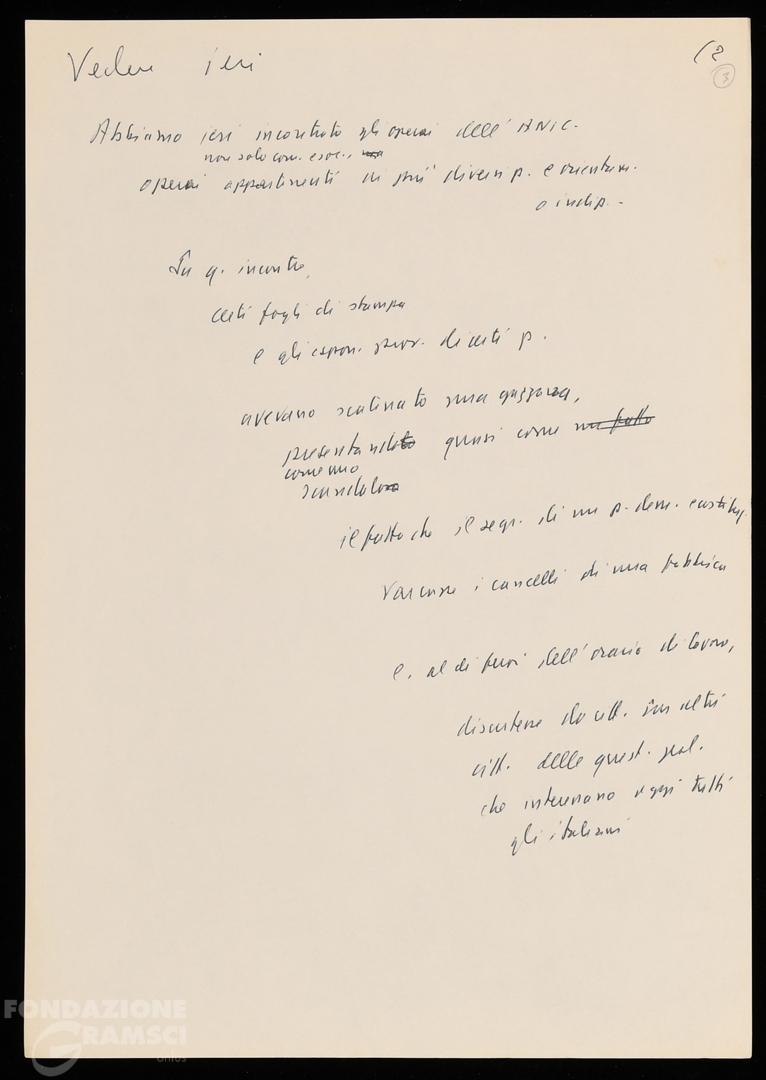 Vedere ieri
(2
3
Abbiamo ieri incontrato gli operai dell'ANIC.
non solo com. e soc., ma
operai appartenenti ai più diversi p. e orientam.
o indip.-
In q. incontro,
certi fogli di stampa
e gli espon. di certi p.
avevano scatenato una gazzarra,
presentandoto quasi come un fatto
come uno
scandalo
il fatto che il segr. di un p. dem. e costituz.
varcasse i cancelli di una fabbrica
e, al di fuori dell'orario di lavoro,
discutesse da citt. con altri
citt. delle quest. pol.
che interessano oggi tutti
gli italiani
FONDAZIONE
GRAMSCI
onlus